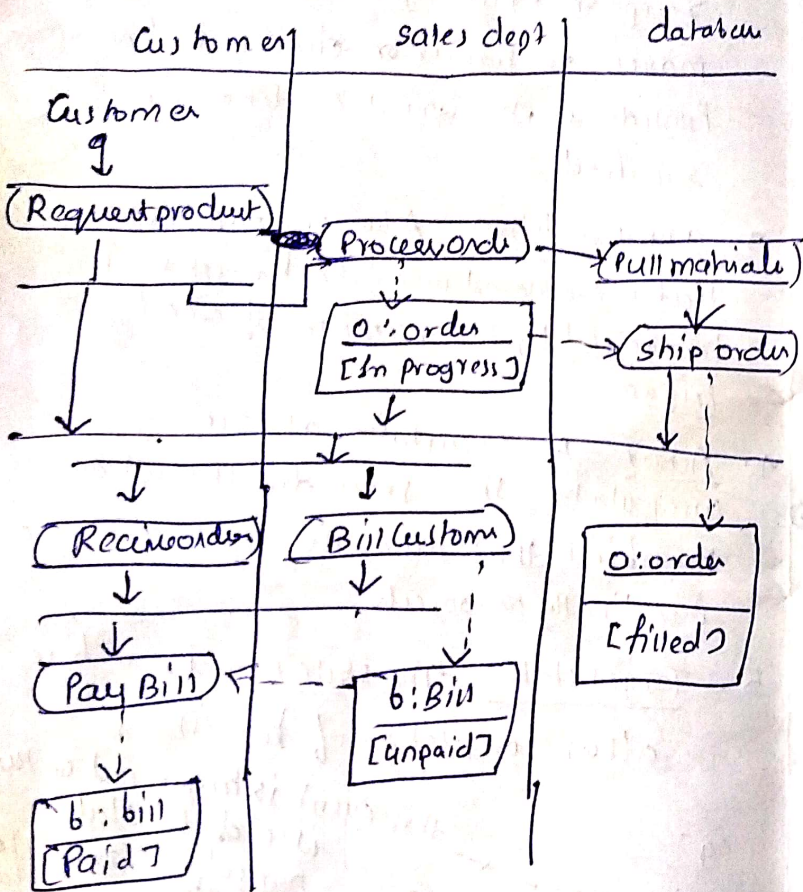 Customer sales dept database
Customer
Request product
Process order
Pull materials
O: order
[In progress]
Ship order
Receive order
Bill Customer
O: order
[filled]
Pay Bill
b: Bill
[unpaid]
b: bill
[Paid]